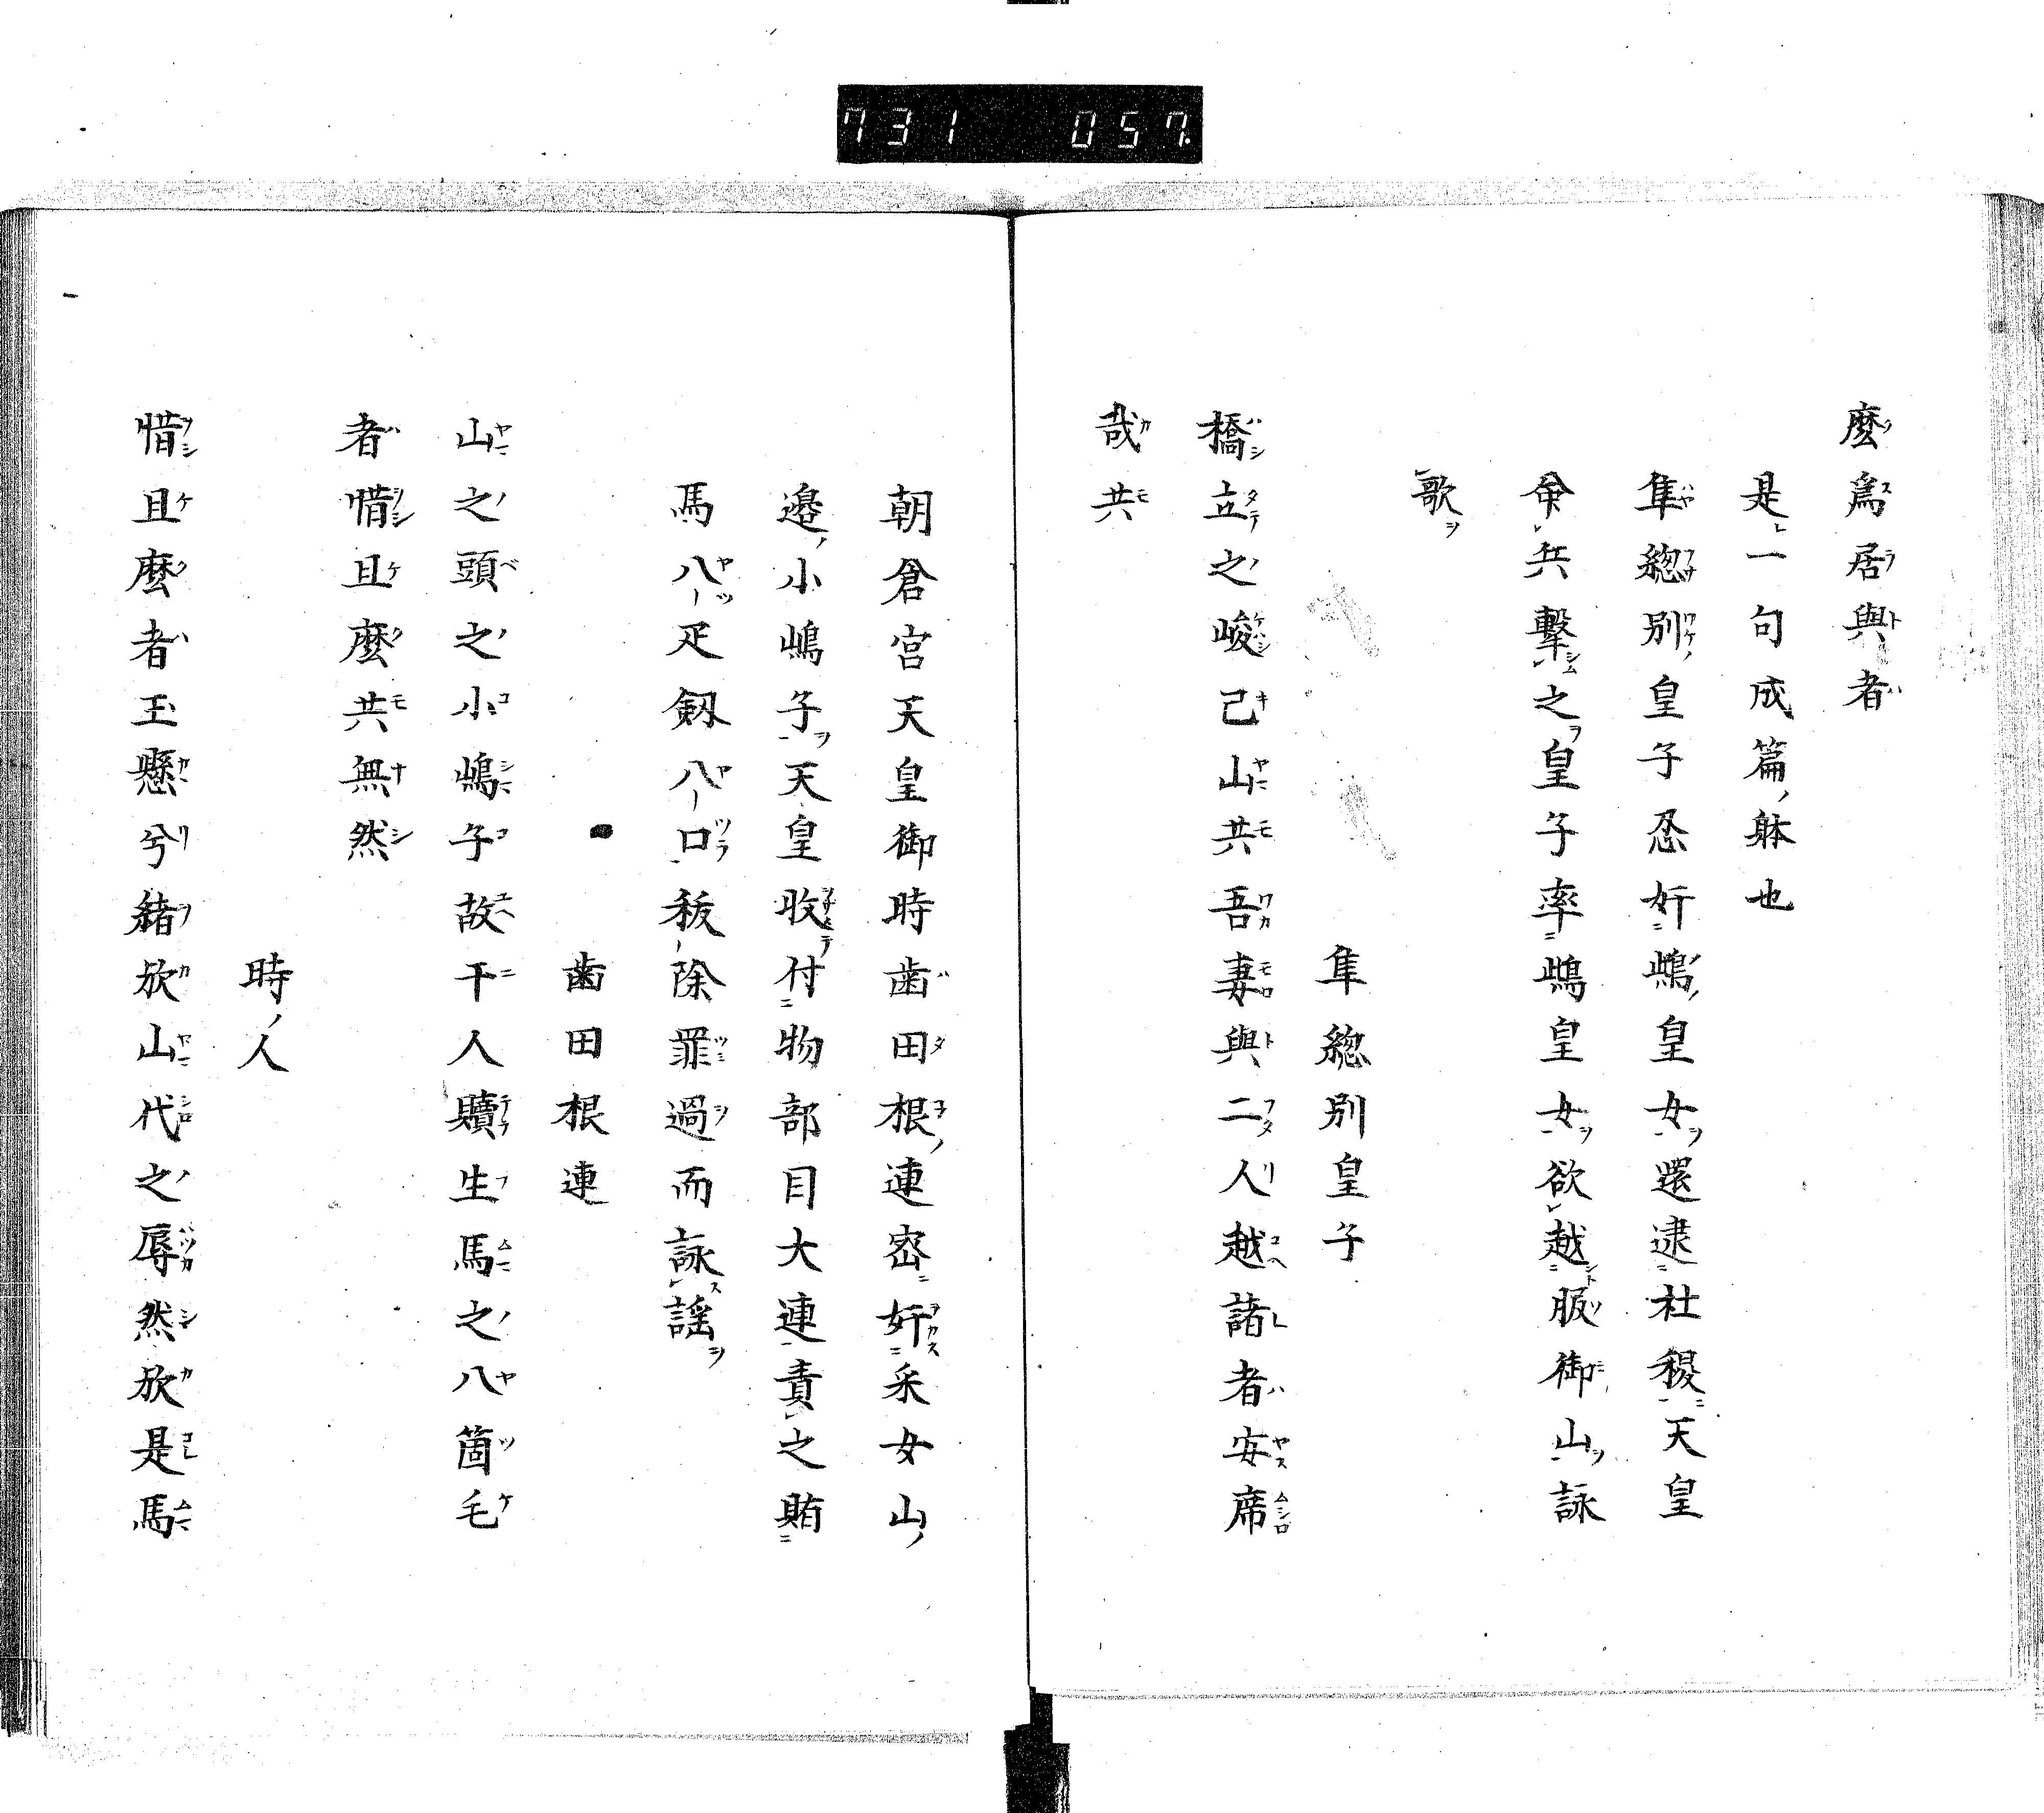 731 057
麼爲居與者
是一句成篇躰也
隼總別皇子忍奸鴡皇女還逮社稷天皇
命兵擊之皇子率鴡皇女欲越脤御山詠
歌
隼總別皇子
橋立之峻己山共吾妻與二人越諸者安席
哉共
朝倉宮天皇御時齒田根連密奸采女山
邊小嶋子天皇收付物部目大連責之賄
馬八疋劔八口秡除罪過而詠謡
齒田根連
山之頭之小嶋子故干人贖生馬之八箇毛
者惜且麼共無然
時人
惜且麼者玉懸兮緒欣山代之辱然欣是馬